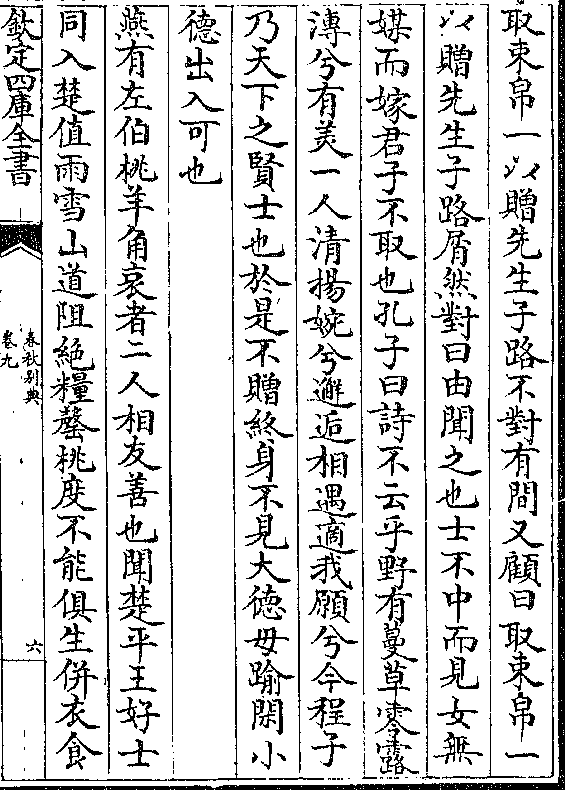 取束帛一以贈先生子路不對有間又顧曰取束帛一
以贈先生子路屑然對曰由聞之也士不中而見女無
媒而嫁君子不取也孔子曰詩不云乎野有蔓草零露
漙兮有美一人清揚婉兮邂逅相遇適我願兮今程子
乃天下之賢士也於是不贈終身不見大德毋踰閑小
德出入可也
燕有左伯桃羊角哀者二人相友善也聞楚平王好士
同入楚值雨雪山道阻絶糧罄桃度不能俱生併衣食
欽定四庫全書
春秋别典
卷九
六